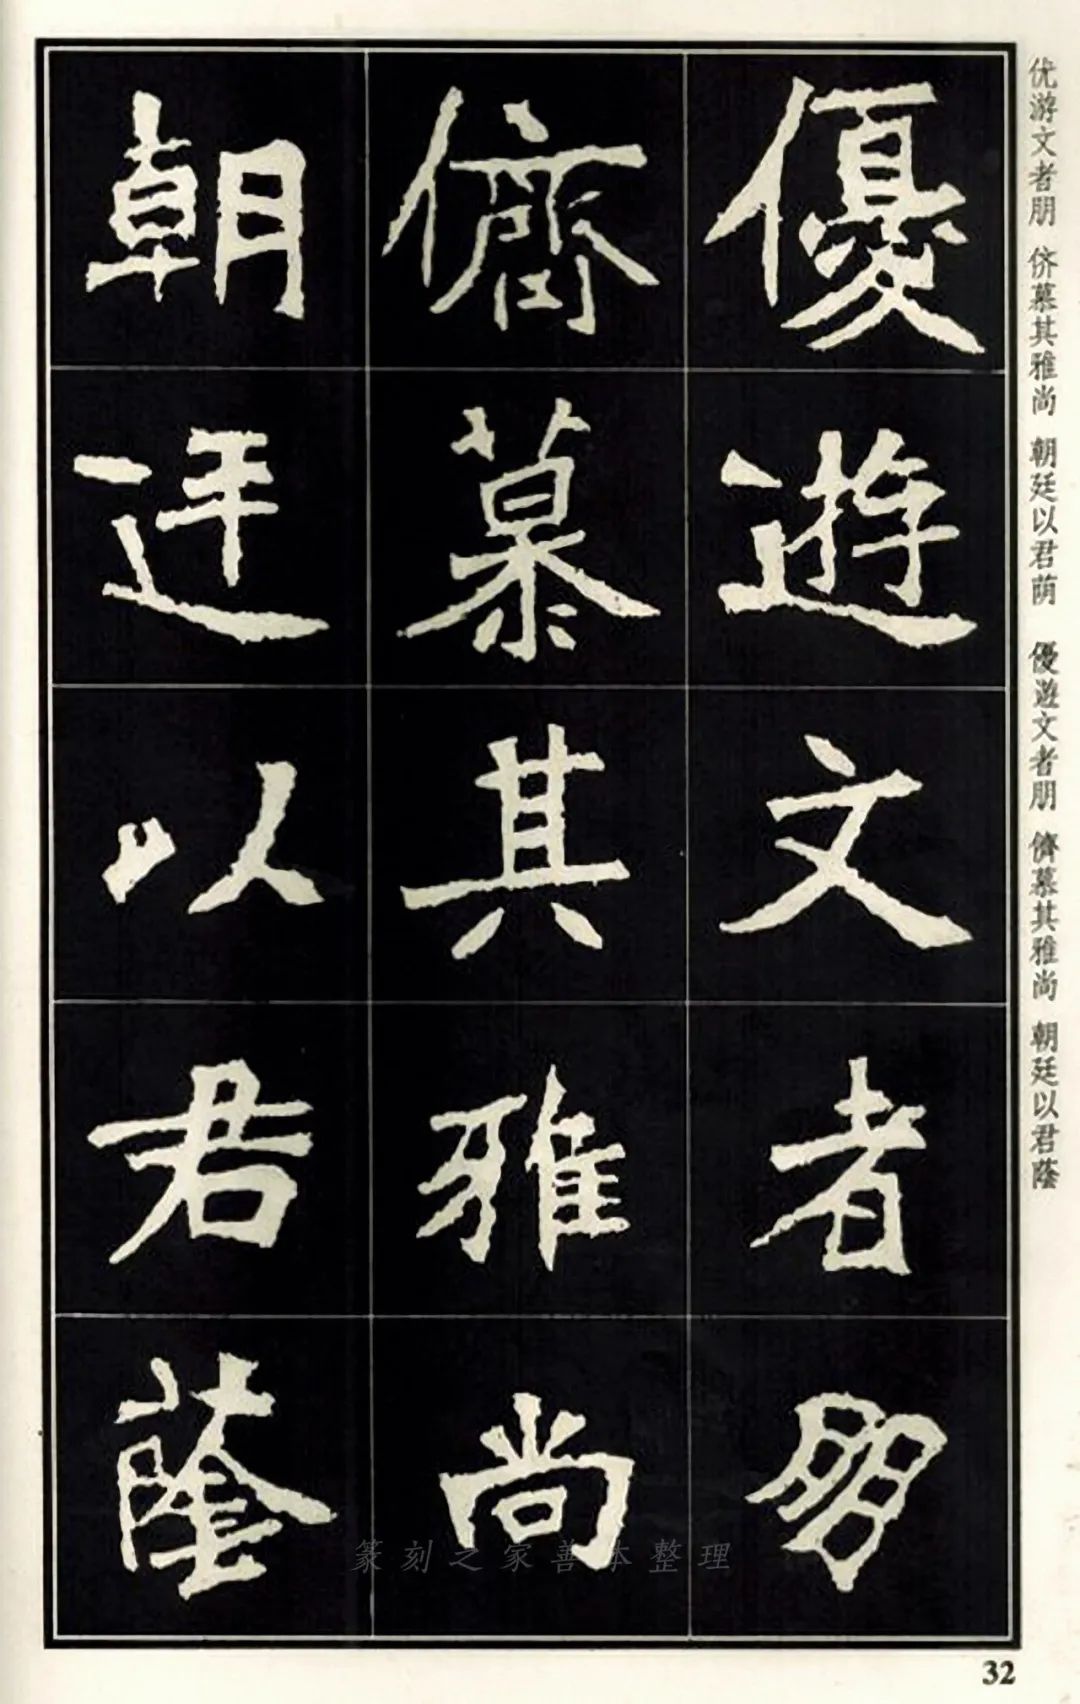 优游文者朋 侪慕其雅尚 朝廷以君荫 優遊文者朋 儕慕其雅尚 朝廷以君蔭
優遊文者朋
儕慕其雅尚
朝廷以君蔭
篆刻之家善本整理
32